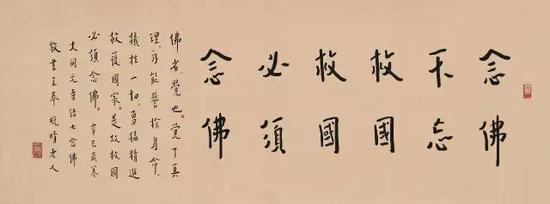 念佛
不忘
救國
救國
必須
念佛
佛者覺也覺了真
理乃能誓捨身命
犧牲一切勇猛精進
救護國家是故救國
必須念佛辛巳歲寒
大開元寺結七念佛
敬書呈奉晚晴老人